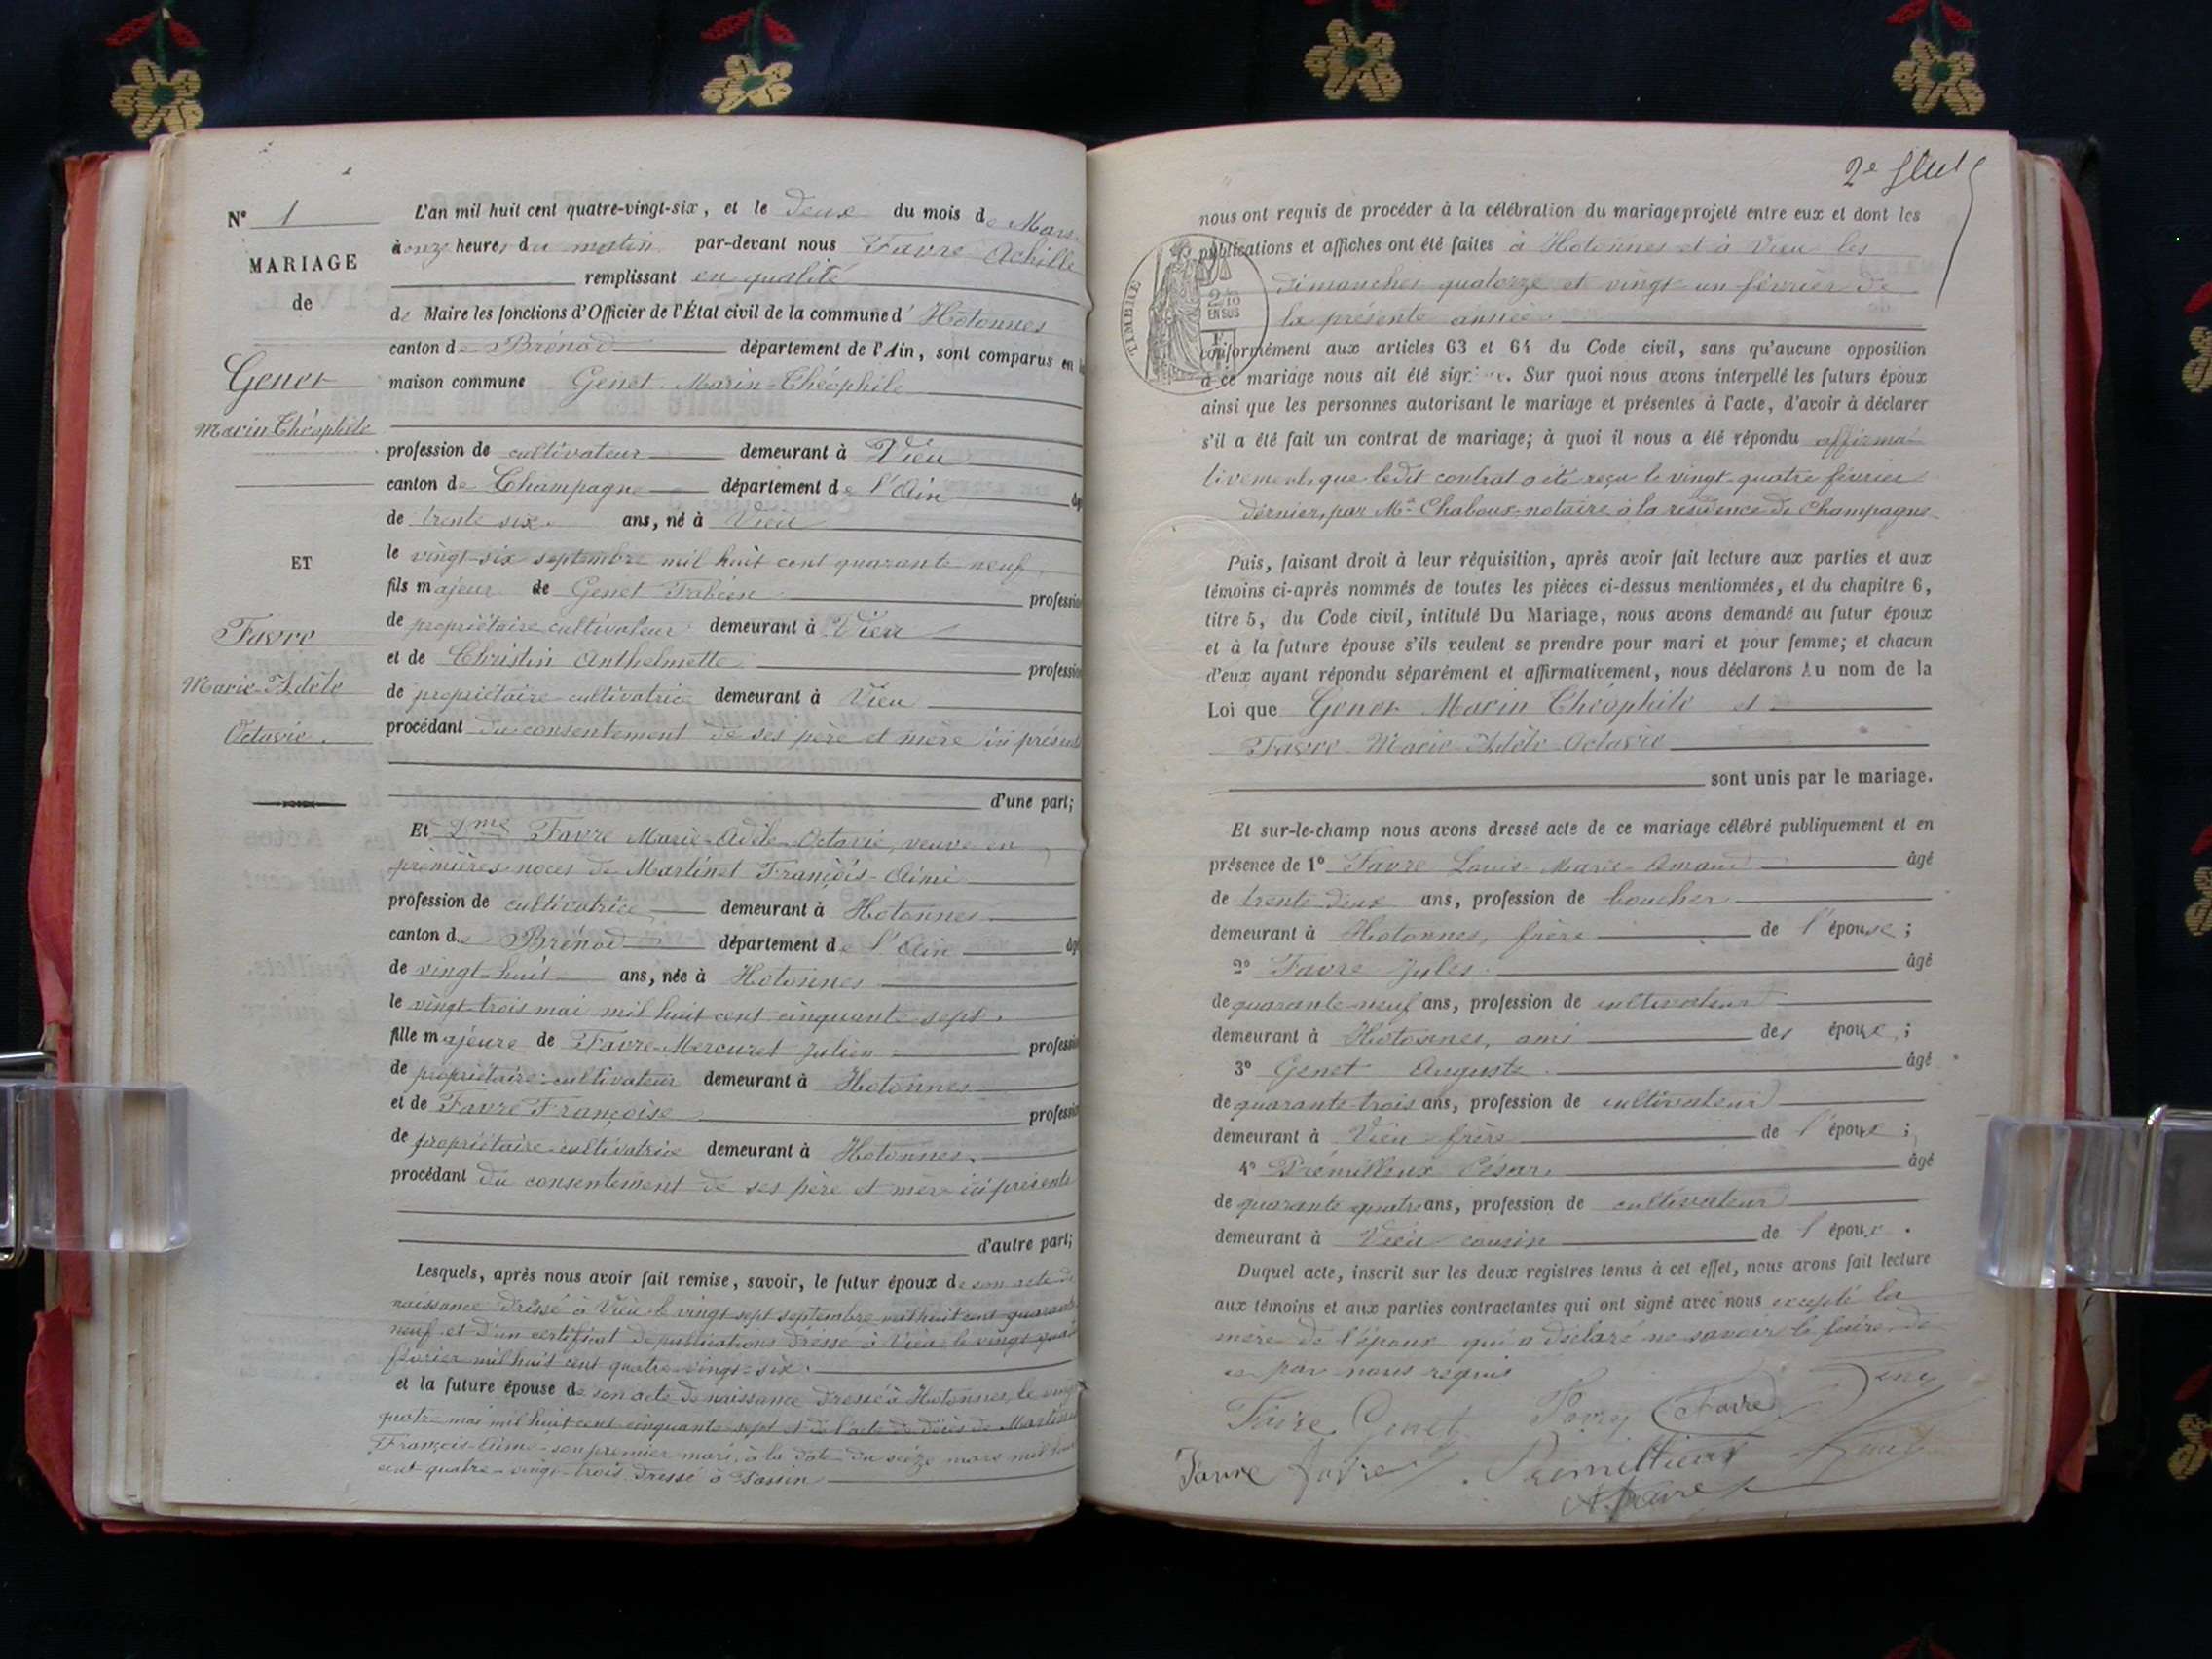 N° 1
MARIAGE
de
Genet
Marin Théophile
ET
Favre
Marie-Adèle
Octavie.
L'an mil huit cent quatre-vingt-six, et le deux du mois de Mars
à onze heures du matin par-devant nous Favre Achille
remplissant en qualité
de Maire les fonctions d'Officier de l'État civil de la commune d' Hotonnes
canton de Brénod département de l'Ain, sont comparus en la
maison commune Genet Marin-Théophile
profession de cultivateur demeurant à Vieu
canton de Champagne département de l'Ain âgé
de trente six ans, né à Vieu
le vingt-six septembre mil huit cent quarante neuf
fils majeur de Genet Fabien profession
de propriétaire cultivateur demeurant à Vieu
et de Christin Anthelmette profession
de propriétaire-cultivatrice demeurant à Vieu
procédant du consentement de ses père et mère ici présents
d'une part;
Et Dme Favre Marie-Adèle-Octavie, veuve en
premières noces de Martinet François-Aimé
profession de cultivatrice demeurant à Hotonnes
canton de Brénod département de l'Ain âgé
de vingt-huit ans, née à Hotonnes
le vingt-trois mai mil huit cent cinquante sept.
fille majeure de Favre-Mercuret Julien profession
de propriétaire-cultivateur demeurant à Hotonnes
et de Favre Françoise profession
de propriétaire-cultivatrice demeurant à Hotonnes.
procédant du consentement de ses père et mère ici présents
d'autre part;
Lesquels, après nous avoir fait remise, savoir, le futur époux de son acte de
naissance dressé à Vieu le vingt sept septembre mil huit cent quarante
neuf et d'un certificat de publications dressé à Vieu, le vingt quatre
février mil huit cent quatre-vingt-six.
et la future épouse de son acte de naissance dressé à Hotonnes, le vingt
quatre mai mil huit cent cinquante-sept et de l'acte de décès de Martinet
François-Aimé son premier mari, à la date du seize mars mil huit
cent quatre-vingt-trois dressé à
2e
nous ont requis de procéder à la célébration du mariage projeté entre eux et dont les
publications et affiches ont été faites à Hotonnes et à Vieu les
dimanches quatorze et vingt un février de
la présente année.
TIMBRE
2/10
EN SUS
conformément aux articles 63 et 64 du Code civil, sans qu'aucune opposition
à ce mariage nous ait été signifiée. Sur quoi nous avons interpellé les futurs époux
ainsi que les personnes autorisant le mariage et présentes à l'acte, d'avoir à déclarer
s'il a été fait un contrat de mariage; à quoi il nous a été répondu affirma-
tivement, que ledit contrat a été reçu le vingt-quatre février
dernier, par Me Chaboux, notaire à la résidence de Champagne
Puis, faisant droit à leur réquisition, après avoir fait lecture aux parties et aux
témoins ci-après nommés de toutes les pièces ci-dessus mentionnées, et du chapitre 6,
titre 5, du Code civil, intitulé Du Mariage, nous avons demandé au futur époux
et à la future épouse s'ils veulent se prendre pour mari et pour femme; et chacun
d'eux ayant répondu séparément et affirmativement, nous déclarons Au nom de la
Loi que Genet Marin Théophile et
Favre-Marie-Adèle Octavie
sont unis par le mariage.
Et sur-le-champ nous avons dressé acte de ce mariage célébré publiquement et en
présence de 1° Favre Louis-Marie-Amand âgé
de trente deux ans, profession de boucher
demeurant à Hotonnes, frère de l'épouse;
2° Favre Jules âgé
de quarante-neuf ans, profession de cultivateur
demeurant à Hotonnes, ami des époux;
3° Genet Auguste âgé
de quarante-trois ans, profession de cultivateur
demeurant à Vieu frère de l'époux;
4° Prémillieux César. âgé
de quarante quatre ans, profession de cultivateur
demeurant à Vieu cousin de l'époux.
Duquel acte, inscrit sur les deux registres tenus à cet effet, nous avons fait lecture
aux témoins et aux parties contractantes qui ont signé avec nous excepté la
mère de l'époux qui a déclaré ne savoir le faire de
ce par nous requis
Favre Genet Favre
Favre Favre Premillieux Genet
A. Favre